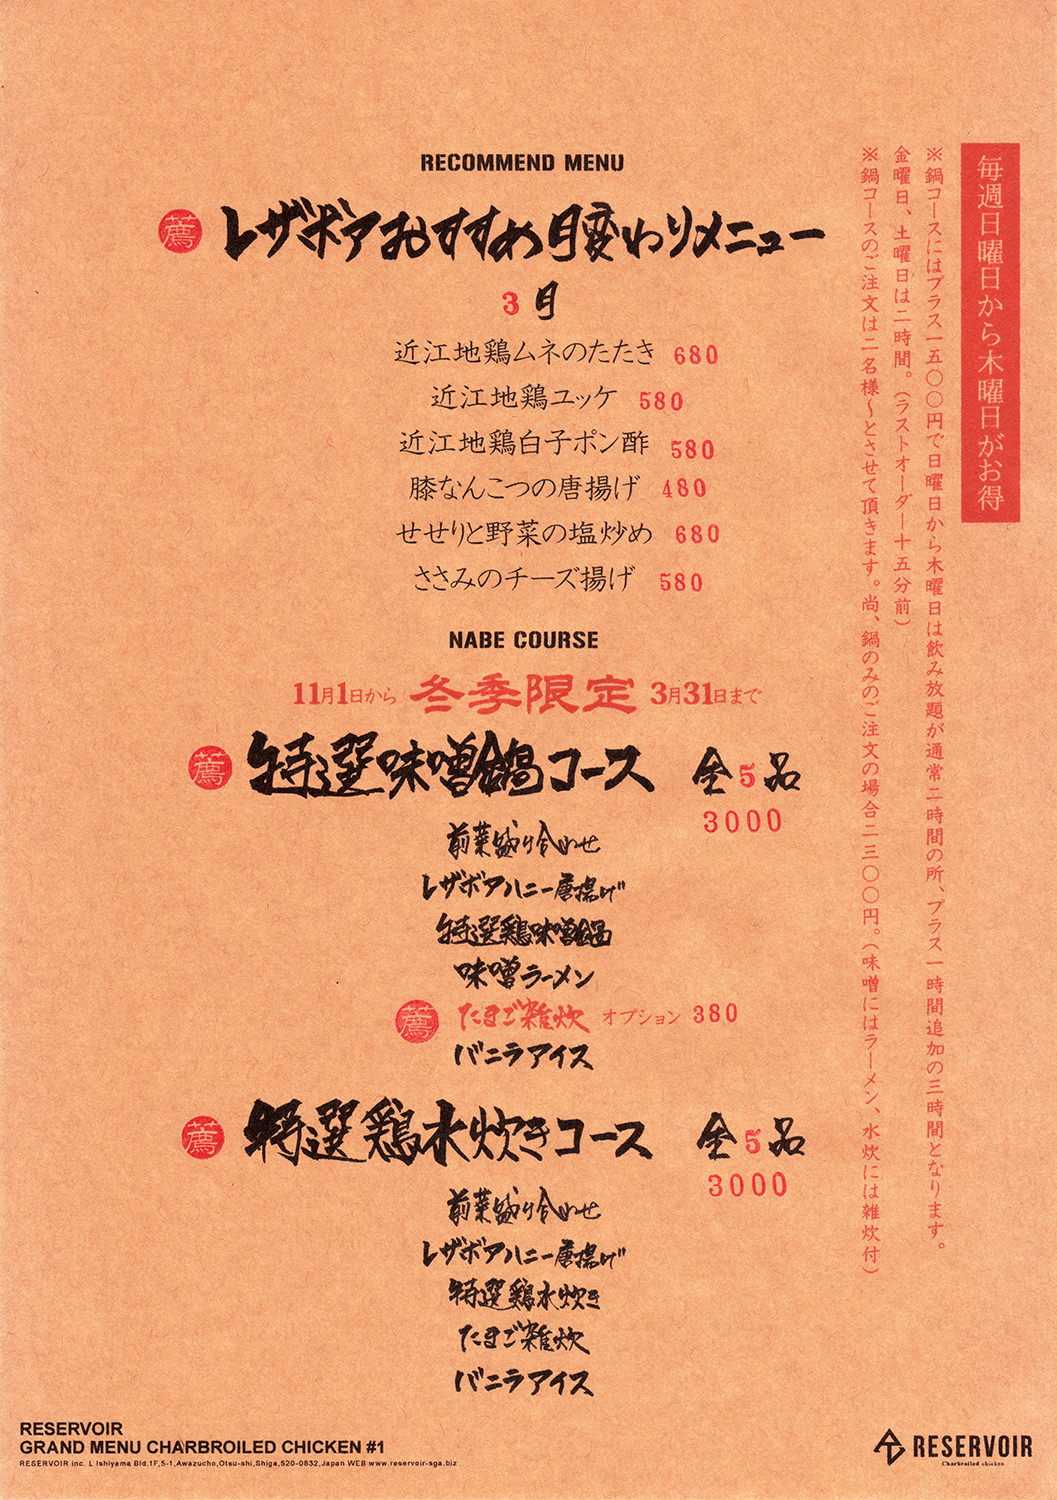 RECOMMEND MENU
薦 レザボアおすすめ月変わりメニュー
3月
近江地鶏ムネのたたき 680
近江地鶏ユッケ 580
近江地鶏白子ポン酢 580
膝なんこつの唐揚げ 480
せせりと野菜の塩炒め 680
ささみのチーズ揚げ 580
NABE COURSE
11月1日から 冬季限定 3月31日まで
薦 特選味噌鍋コース 全5品
3000
前菜盛り合わせ
レザボアハニー唐揚げ
特選鶏味噌鍋
味噌ラーメン
薦 たまご雑炊 オプション 380
バニラアイス
薦 特選鶏水炊きコース 全5品
3000
前菜盛り合わせ
レザボアハニー唐揚げ
特選鶏水炊き
たまご雑炊
バニラアイス
毎週日曜日から木曜日がお得
※鍋コースにはプラス一五〇〇円で日曜日から木曜日は飲み放題が通常二時間の所、プラス一時間追加の三時間となります。
金曜日、土曜日は二時間。（ラストオーダー十五分前）
※鍋コースのご注文は二名様〜とさせて頂きます。尚、鍋のみのご注文の場合二三〇〇円。（味噌にはラーメン、水炊には雑炊付）
RESERVOIR
GRAND MENU CHARBROILED CHICKEN #1
RESERVOIR inc. L Ishiyama Bld.1F,5-1,Awazucho,Otsu-shi,Shiga,520-0832,Japan WEB www.reservoir-sga.biz
RESERVOIR
Charbroiled chicken